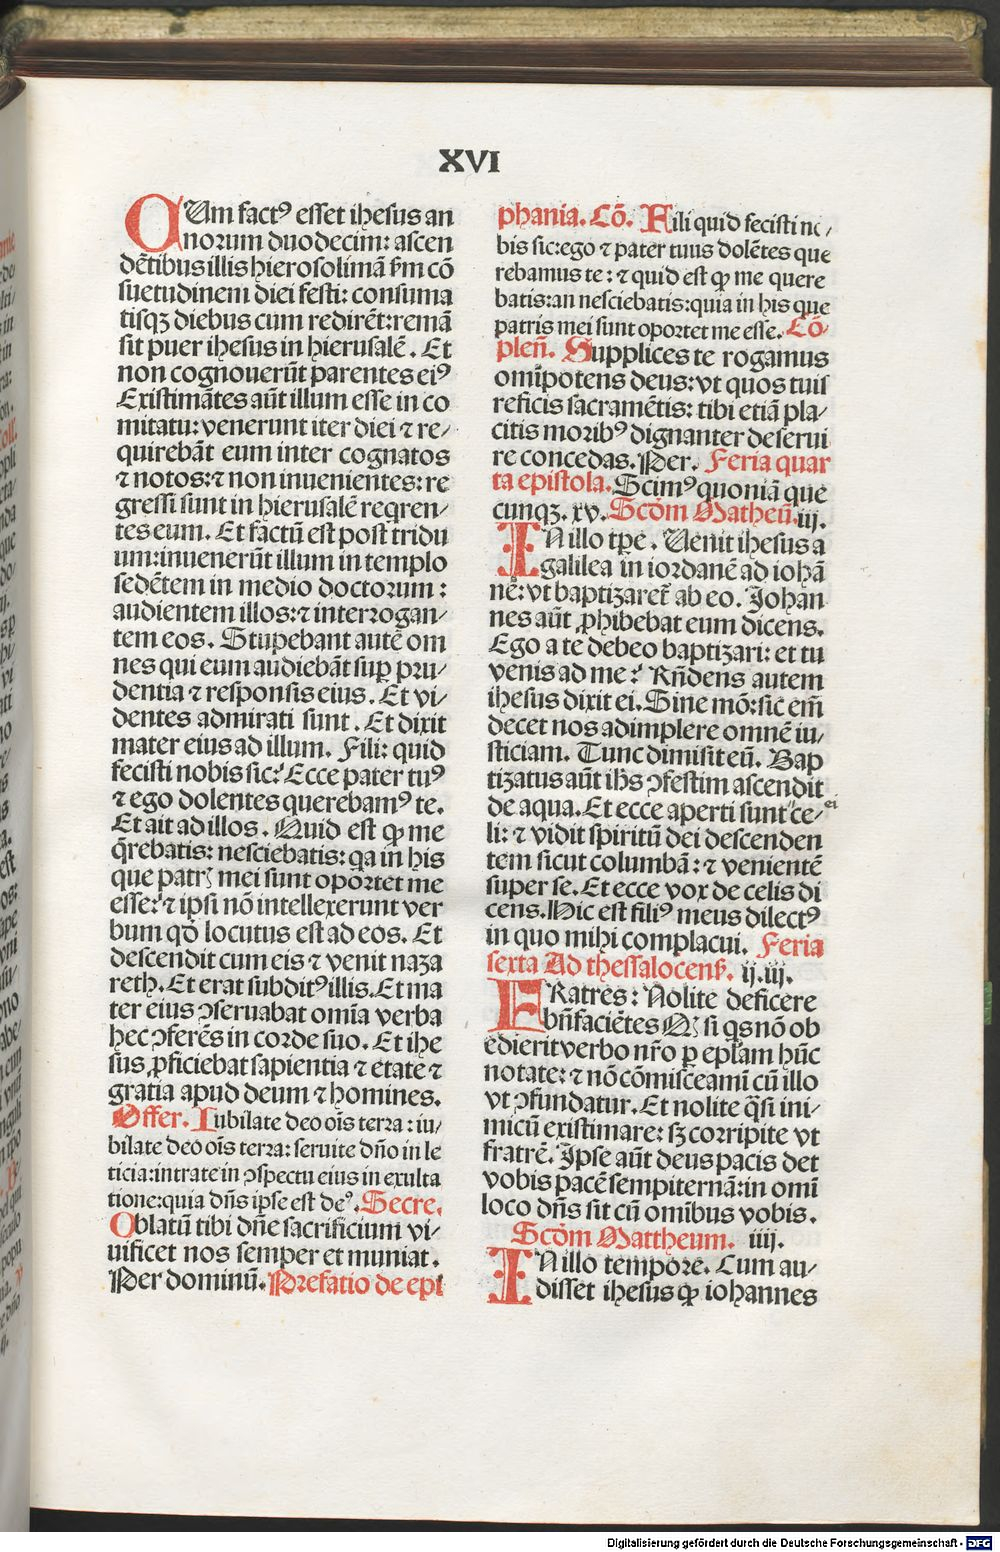 XVI
CUm factꝰ esset ihesus an
norum duodecim: ascen
dētibus illis hierosolimā ẜm cō
suetudinem diei festi: consuma
tisqꝫ diebus cum redirēt: remā
sit puer ihesus in hierusalē. Et
non cognouerūt parentes eiꝰ
Existimātes aūt illum esse in co
mitatu: venerunt iter diei ⁊ re⸗
quirebāt eum inter cognatos
⁊ notos: ⁊ non inuenientes: re
gressi sunt in hierusalē reqren⸗
tes eum. Et factū est post tridu
um: inuenerūt illum in templo
sedētem in medio doctorum:
audientem illos: ⁊ interrogan⸗
tem eos. Stupebant autē om
nes qui eum audiebāt suꝑ pru⸗
dentia ⁊ responsis eius. Et vi⸗
dentes admirati sunt. Et dixit
mater eius ad illum. Fili: quid
fecisti nobis sic: Ecce pater tuꝰ
⁊ ego dolentes querebamꝰ te.
Et ait ad illos. Quid est ꝙ me
q̄rebatis: nesciebatis: qa in his
que patrꝭ mei sunt oportet me
esse: ⁊ ipsi nō intellexerunt ver
bum qd̄ locutus est ad eos. Et
descendit cum eis ⁊ venit naza
reth. Et erat subditꝰ illis. Et ma
ter eius ꝯseruabat omīa verba
hec ꝯferēs in corde suo. Et ihe
sus ꝓficiebat sapientia ⁊ etate ⁊
gratia apud deum ⁊ homines.
Offer. Iubilate deo oīs terra: iu⸗
bilate deo oīs terra: seruite dn̄o in le
ticia: intrate in ꝯspectu eius in exulta
tione: quia dn̄s ipse est deꝰ. Secre.
Oblatū tibi dn̄e sacrificium vi⸗
uificet nos semper et muniat.
Per dominū. Prefatio de epi
phania. Cō. Fili quid fecisti no⸗
bis sic: ego ⁊ pater tuus dolētes que
rebamus te: ⁊ quid est ꝙ me quere
batis: an nesciebatis: quia in his que
patris mei sunt oportet me esse. Cō⸗
pleñ. Supplices te rogamus
omīpotens deus: vt quos tuis
reficis sacramētis: tibi etiā pla⸗
citis moribꝰ dignanter deserui
re concedas. Per. Feria quar
ta epistola. Scimꝰ quoniā que
cunqꝫ. xv. Scd̄m Matheū. iij.
IN illo tꝑe. Uenit ihesus a
galilea in iordanē ad iohā
nē: vt baptizaret̄ ab eo. Johan
nes aūt ꝓhibebat eum dicens.
Ego a te debeo baptizari: et tu
venis ad me: Rn̄dens autem
ihesus dixit ei. Sine mō: sic em̄
decet nos adimplere omnē iu⸗
sticiam. Tunc dimisit eū. Bap
tizatus aūt ihs̄ ꝯfestim ascendit
de aqua. Et ecce aperti sunt ei ce⸗
li: ⁊ vidit spiritū dei descenden
tem sicut columbā: ⁊ venientē
super se. Et ecce vox de celis di
cens. Hic est filiꝰ meus dilectꝰ
in quo mihi complacui. Feria
sexta Ad thessalocenẜ. ij. iij.
FRatres: Nolite deficere
bn̄faciētes Qꝭ si qs nō ob
edierit verbo nr̄o ꝑ epl̄am hūc
notate: ⁊ nō cōmisceamī cū illo
vt ꝯfundatur. Et nolite q̄si ini⸗
micū existimare: sꝫ corripite vt
fratrē. Ipse aūt deus pacis det
vobis pacē sempiternā: in omī
loco dn̄s sit cū omībus vobis.
Scd̄m Mattheum. iiij.
IN illo tempore. Cum au⸗
disset ihesus ꝙ iohannes
Digitalisierung gefördert durch die Deutsche Forschungsgemeinschaft - DFG